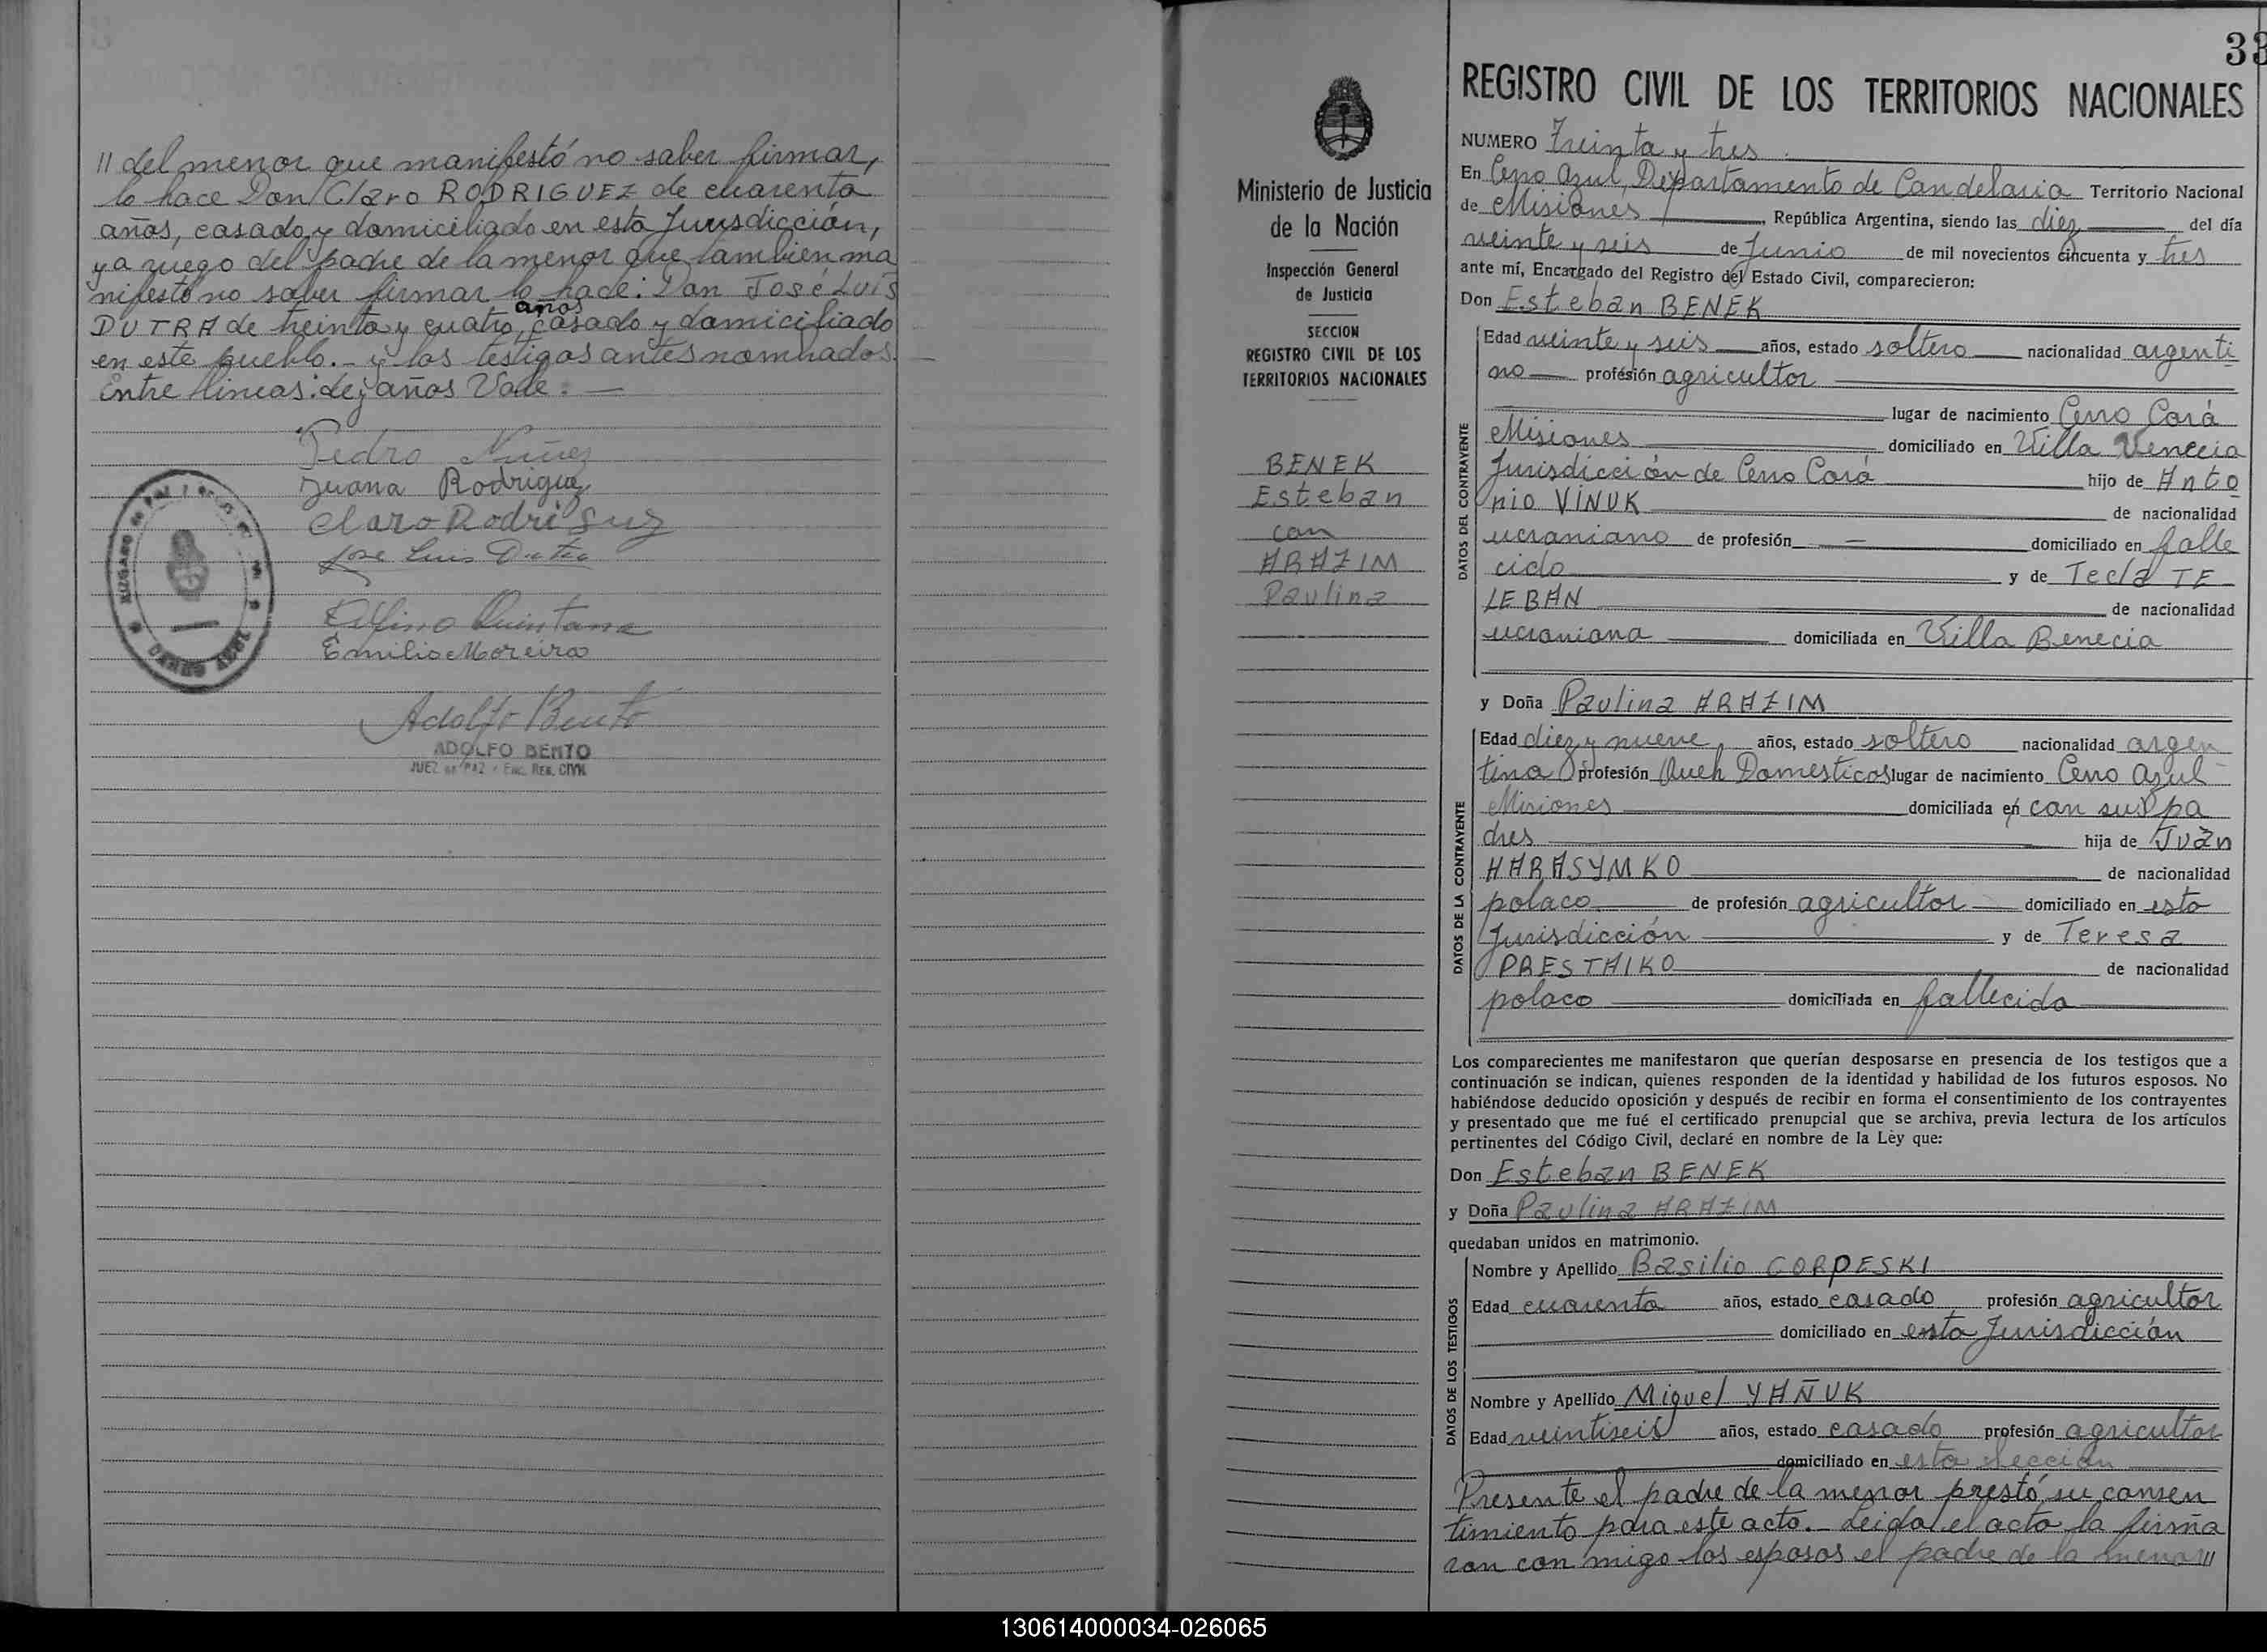 // del menor que manifestó no saber firmar,
lo hace Don Claro RODRIGUEZ de cuarenta
años, casado y domiciliado en esta Jurisdicción,
y a ruego del padre de la menor que tambien ma
nifestó no saber firmar lo hace: Don José Luis
años
DUTRA de treinta y cuatro, casado y domiciliado
en este pueblo.- y los testigos antes nombrados.
Entre lineas: años Vale.
Pedro Nuñez
Juana Rodriguez
Claro Rodriguz
Jose Luis Dutra
Quintana
Emilio Moreira
Adolfo Bento
ADOLFO BENTO
JUEZ DE PAZ Y ENC. REG. CIVIL
JUZGADO DE PAZ
CERRO AZUL
Ministerio de Justicia
de la Nación
Inspección General
de Justicia
SECCION
REGISTRO CIVIL DE LOS
TERRITORIOS NACIONALES
BENEK
Esteban
con
ARAZIM
Paulina
33
REGISTRO CIVIL DE LOS TERRITORIOS NACIONALES
NUMERO Treinta y tres
En Cerro Azul, Departamento de Candelaria Territorio Nacional
de Misiones, República Argentina, siendo las diez del día
veinte y seis de Junio de mil novecientos cincuenta y tres
ante mí, Encargado del Registro del Estado Civil, comparecieron:
Don Esteban BENEK
DATOS DEL CONTRAYENTE
Edad veinte y seis años, estado soltero nacionalidad argenti
no profesión agricultor
lugar de nacimiento Cerro Corá
Misiones domiciliado en Villa Venecia
Jurisdicción de Cerro Corá hijo de Anto
nio VINUK de nacionalidad
ucraniano de profesión — domiciliado en falle
cido y de Tecla TE
LEBAN de nacionalidad
ucraniana domiciliada en Villa Benecia
y Doña Paulina ARAZIM
DATOS DE LA CONTRAYENTE
Edad diez y nueve años, estado soltero nacionalidad argen
tina profesión Queh Domesticos lugar de nacimiento Cerro Azul
Misiones domiciliada en con sus pa
dres hija de Juan
HARASYMKO de nacionalidad
polaco de profesión agricultor domiciliado en esta
Jurisdicción y de Teresa
PRESTAIKO de nacionalidad
polaco domiciliada en fallecida
Los comparecientes me manifestaron que querían desposarse en presencia de los testigos que a
continuación se indican, quienes responden de la identidad y habilidad de los futuros esposos. No
habiéndose deducido oposición y después de recibir en forma el consentimiento de los contrayentes
y presentado que me fué el certificado prenupcial que se archiva, previa lectura de los artículos
pertinentes del Código Civil, declaré en nombre de la Ley que:
Don Esteban BENEK
y Doña Paulina ARAZIM
quedaban unidos en matrimonio.
DATOS DE LOS TESTIGOS
Nombre y Apellido Basilio CORPESKI
Edad cuarenta años, estado casado profesión agricultor
domiciliado en esta Jurisdicción
Nombre y Apellido Miguel YAÑUK
Edad veintiseis años, estado casado profesión agricultor
domiciliado en esta Sección
Presente el padre de la menor prestó su consen
timiento para este acto.- Leida el acta la firma
ron con migo los esposos el padre de la menor//
130614000034-026065